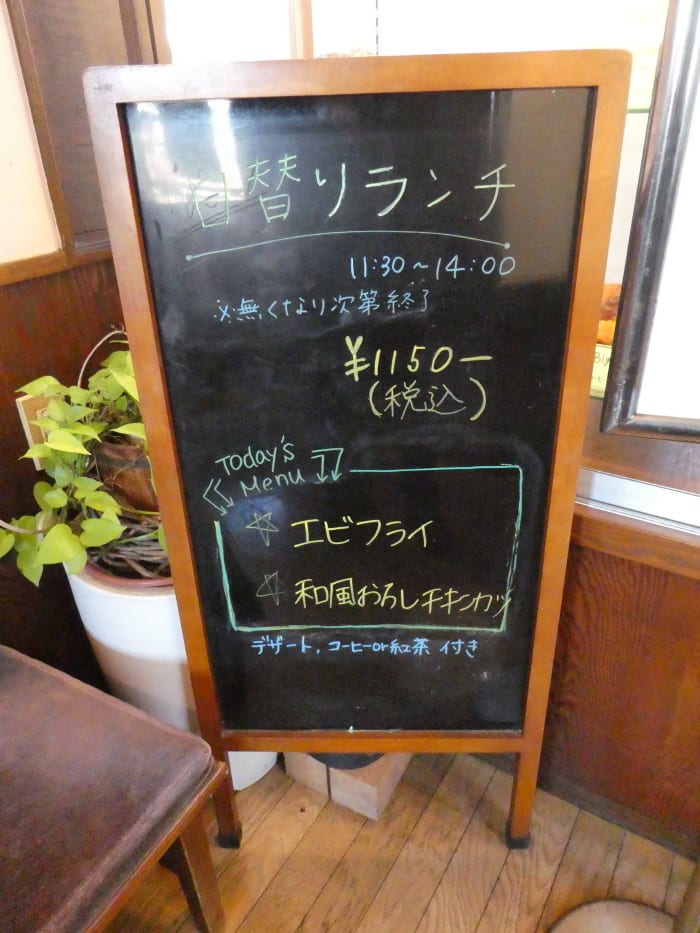 日替りランチ
11:30〜14:00
※無くなり次第終了
¥1150ー
(税込)
Today's
Menu
☆ エビフライ
☆ 和風おろしチキンカツ
デザート,コーヒーor紅茶 付き